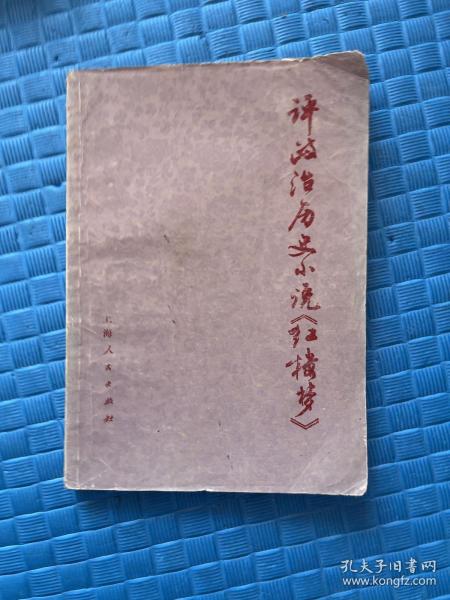 评政治历史小说《红楼梦》
上海人民出版社
孔夫子旧书网
www.kongfz.com